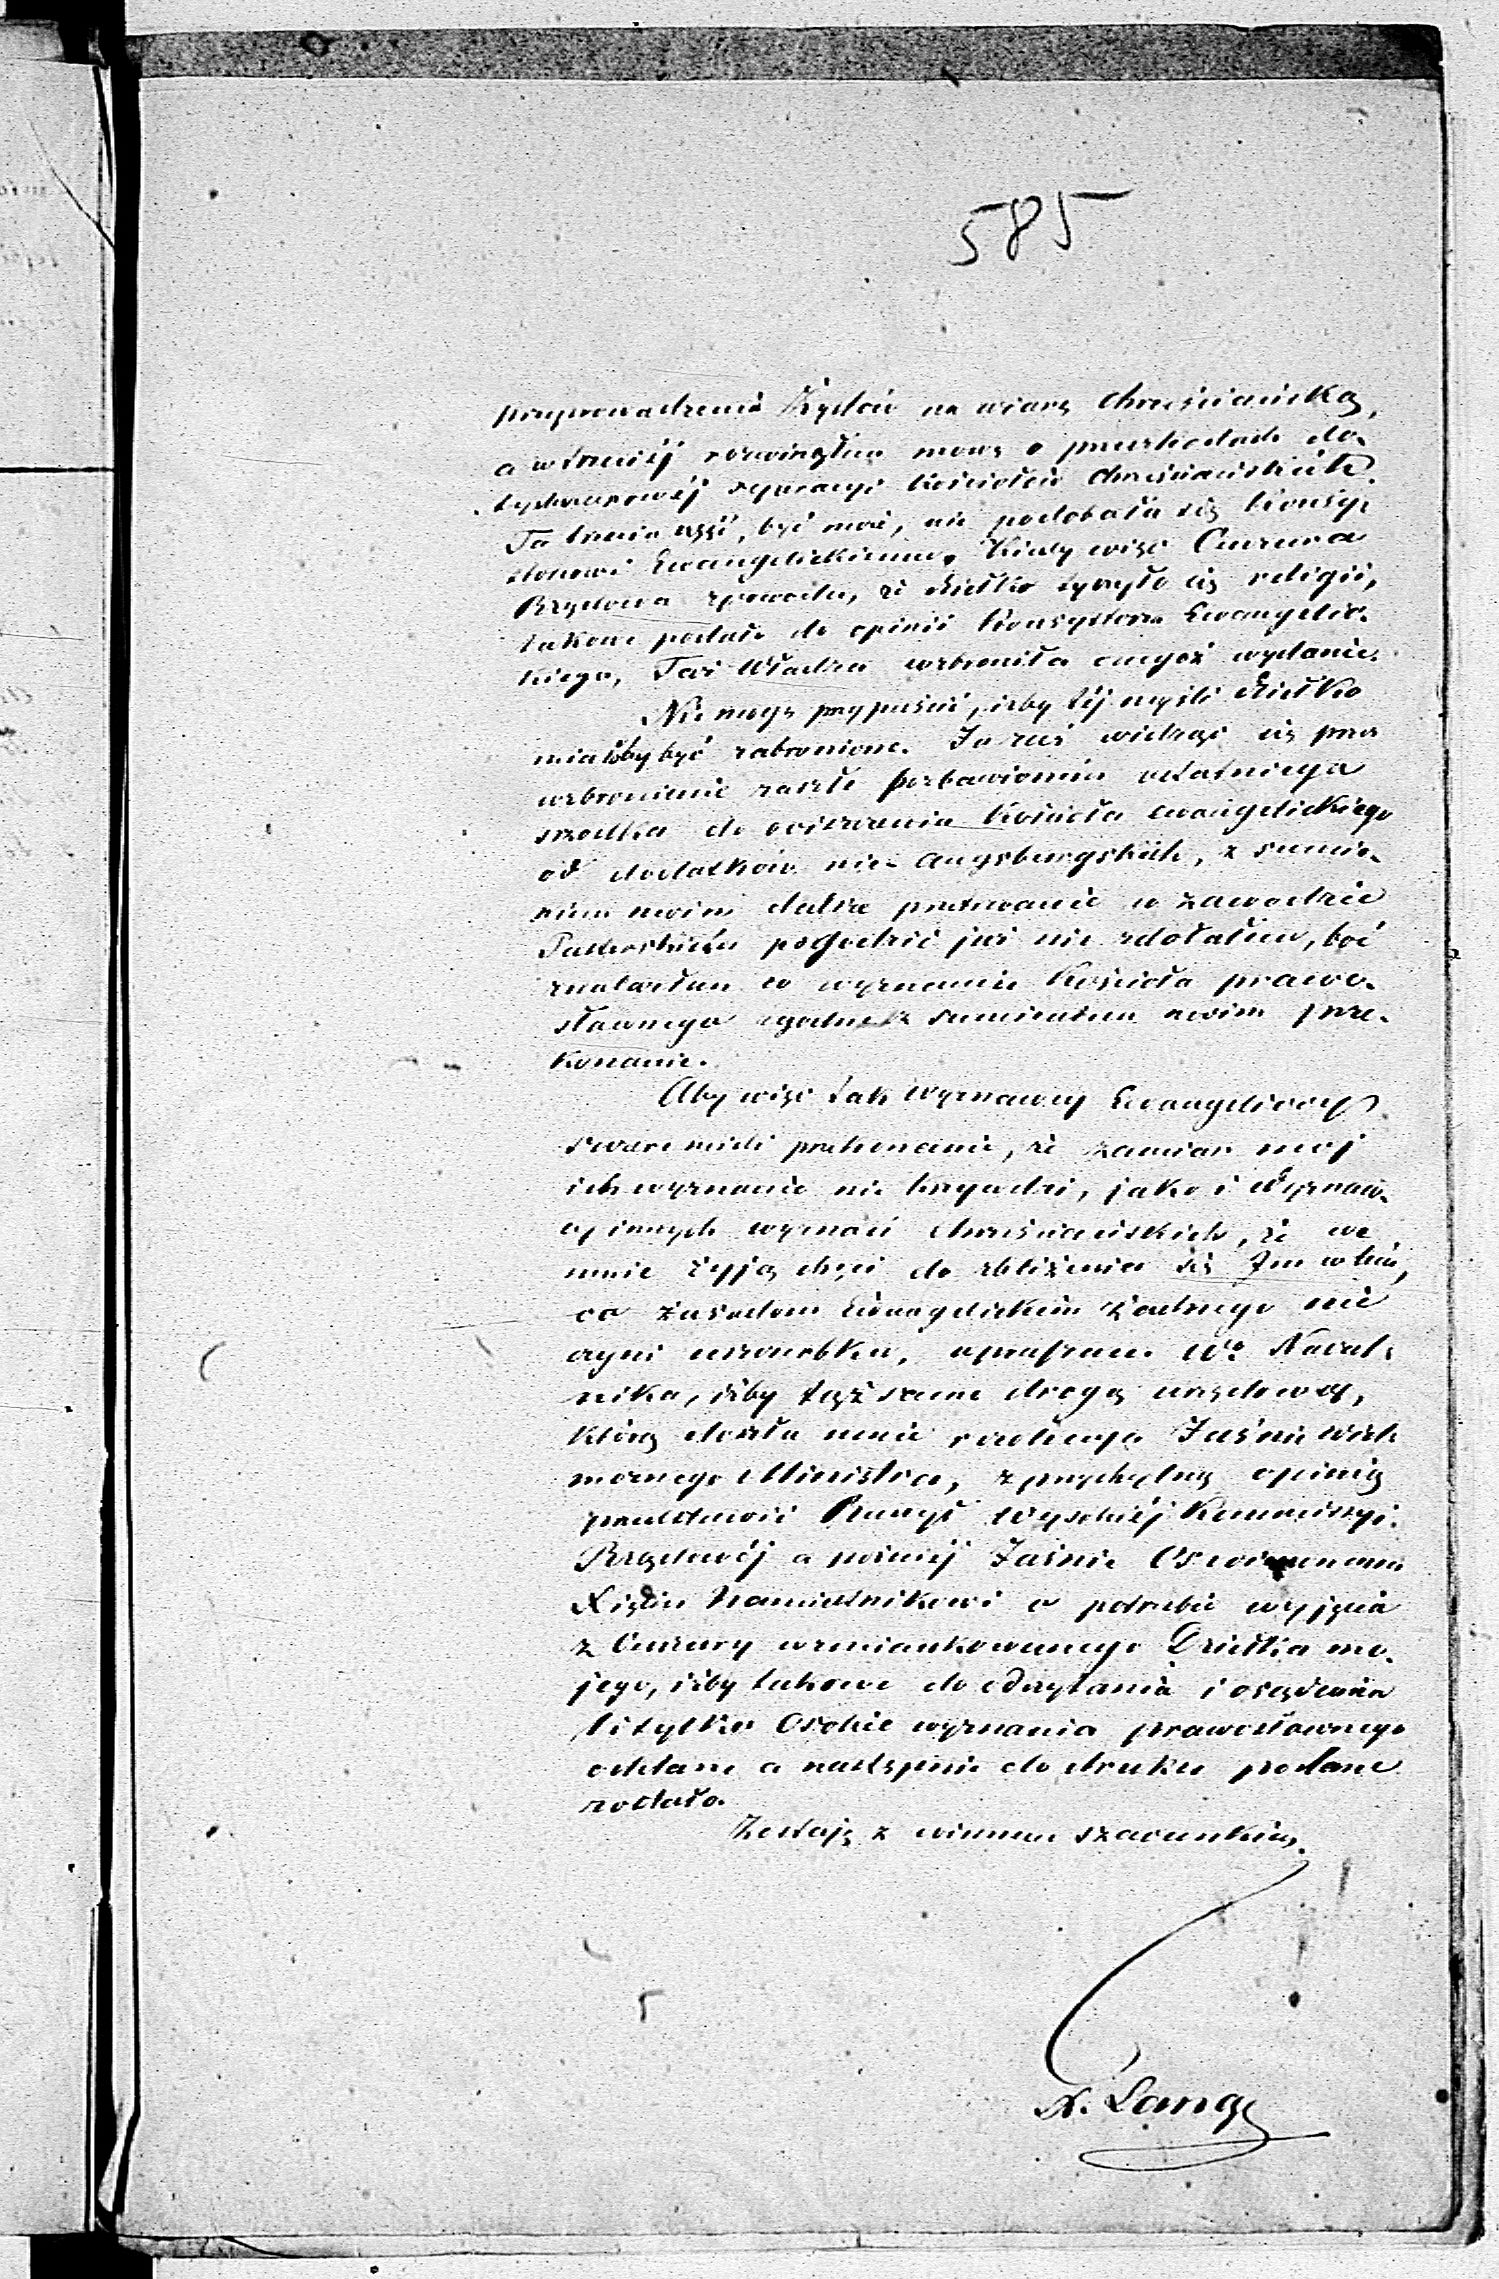 585
przyprowadzenia Żydów na wiarę chrześciańską,
a w treści rozwinąłem mowę o przeszkodach do-
tychczasowéj separacyi Kościołów chrześciańskich.
Ta treść, być może, nie podobała się Konsy-
storzowi Ewangelickiemu. Kiedy więc Cenzura
Rządowa z powodu, że dziełko tyczyło się religii,
takowe podała do opinii Konsystorza Ewangelic-
kiego, Taż Władza wzbroniła onegoż wydanie.
Nie mogę przypuścić, iżby téj myśli dziełko
miałoby być zabronione. Ja zaś widząc się przez
wzbronienie zaszłe pozbawionym ostatniego
środka do oczyszczenia Kościoła ewangelickiego
od dodatków nie-augsburgskich, z sumie-
niem moim dalsze pozostawanie w zawodzie
Pastorskim pogodzić już nie zdołałem, boć
znalazłem w wyznaniu Kościoła prawo-
sławnego zgodne z sumieniem moim prze-
konanie.
Aby więc tak Wyznawcy Ewangeliccy
szczere mieli przekonanie, że zamiar mój
ich wyznanie nie krzywdzi, jako i Wyznaw-
cy innych wyznań chrześciańskich, że we
mnie żyją chęci do zbliżenia się Im w tém,
co zasadom Ewangelickim żadnego nie
czyni uszczerbku, upraszam Wo Naczel-
nika, iżby tąż samą drogą urzędową,
którą doszła mnie rezolucya Jaśnie Wiel-
możnego Ministra, z przychylną opinią
przedstawić raczył Wysokiéj Kommissyi
Rządowéj a później Jaśnie Oświeconemu
Xięciu Namiestnikowi o potrzebie wyjęcia
z Cenzury wzmiankowanego Dziełka mo-
jego, iżby takowe do odczytania i osądzenia
li tylko Osobie wyznania prawosławnego
oddane a następnie do druku podane
zostało.
Zostaję z winnem szacunkiem.
A. Lang